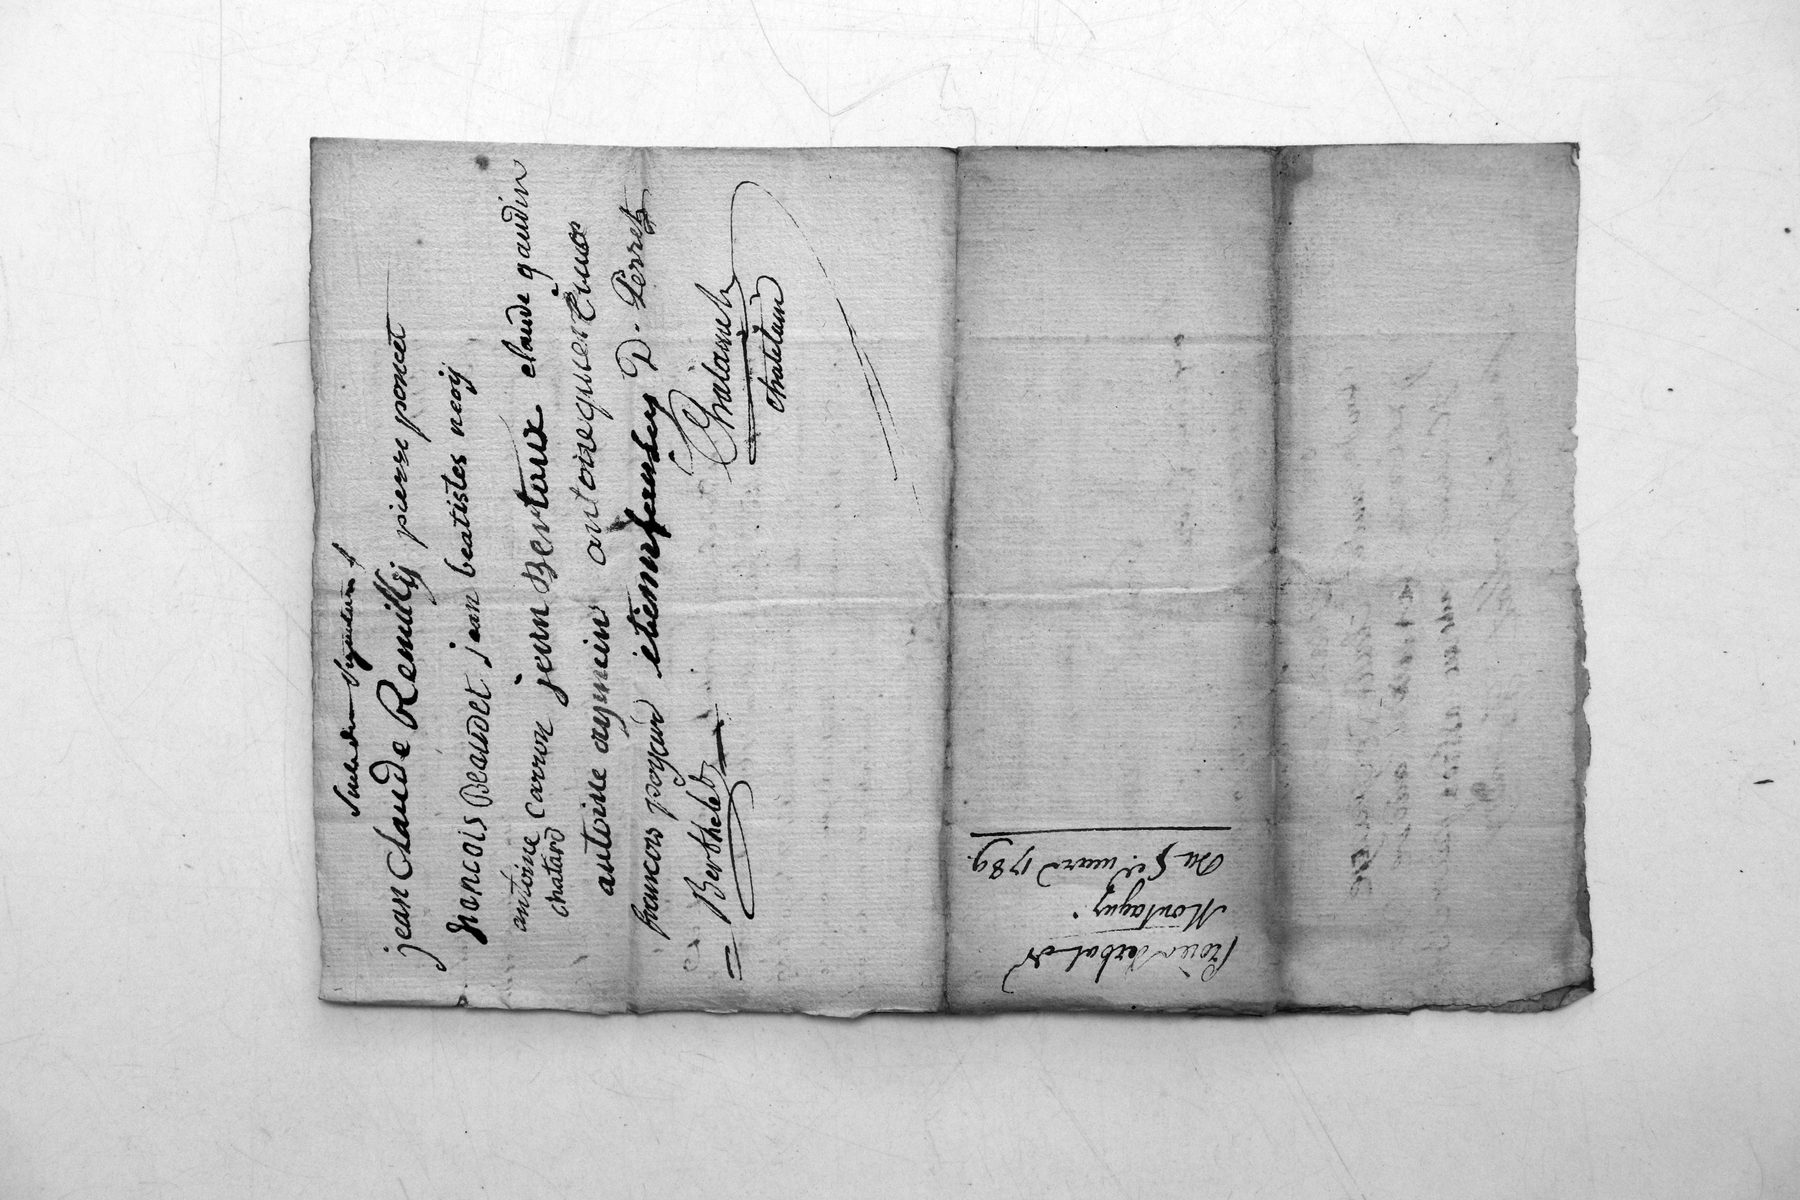 Suivent les Signatures
jean Claude Remilly pierre poncet
francois Beaudet jean beatistes neoy
antoine carron jean Bertaux claude gaudin
chatard
antoine aymein antoine
francois poyain etienne D. Perret
Berthelet Chalasset
chatelain
Procès Verbal de
Montaguy
Du 8 mars 1789.